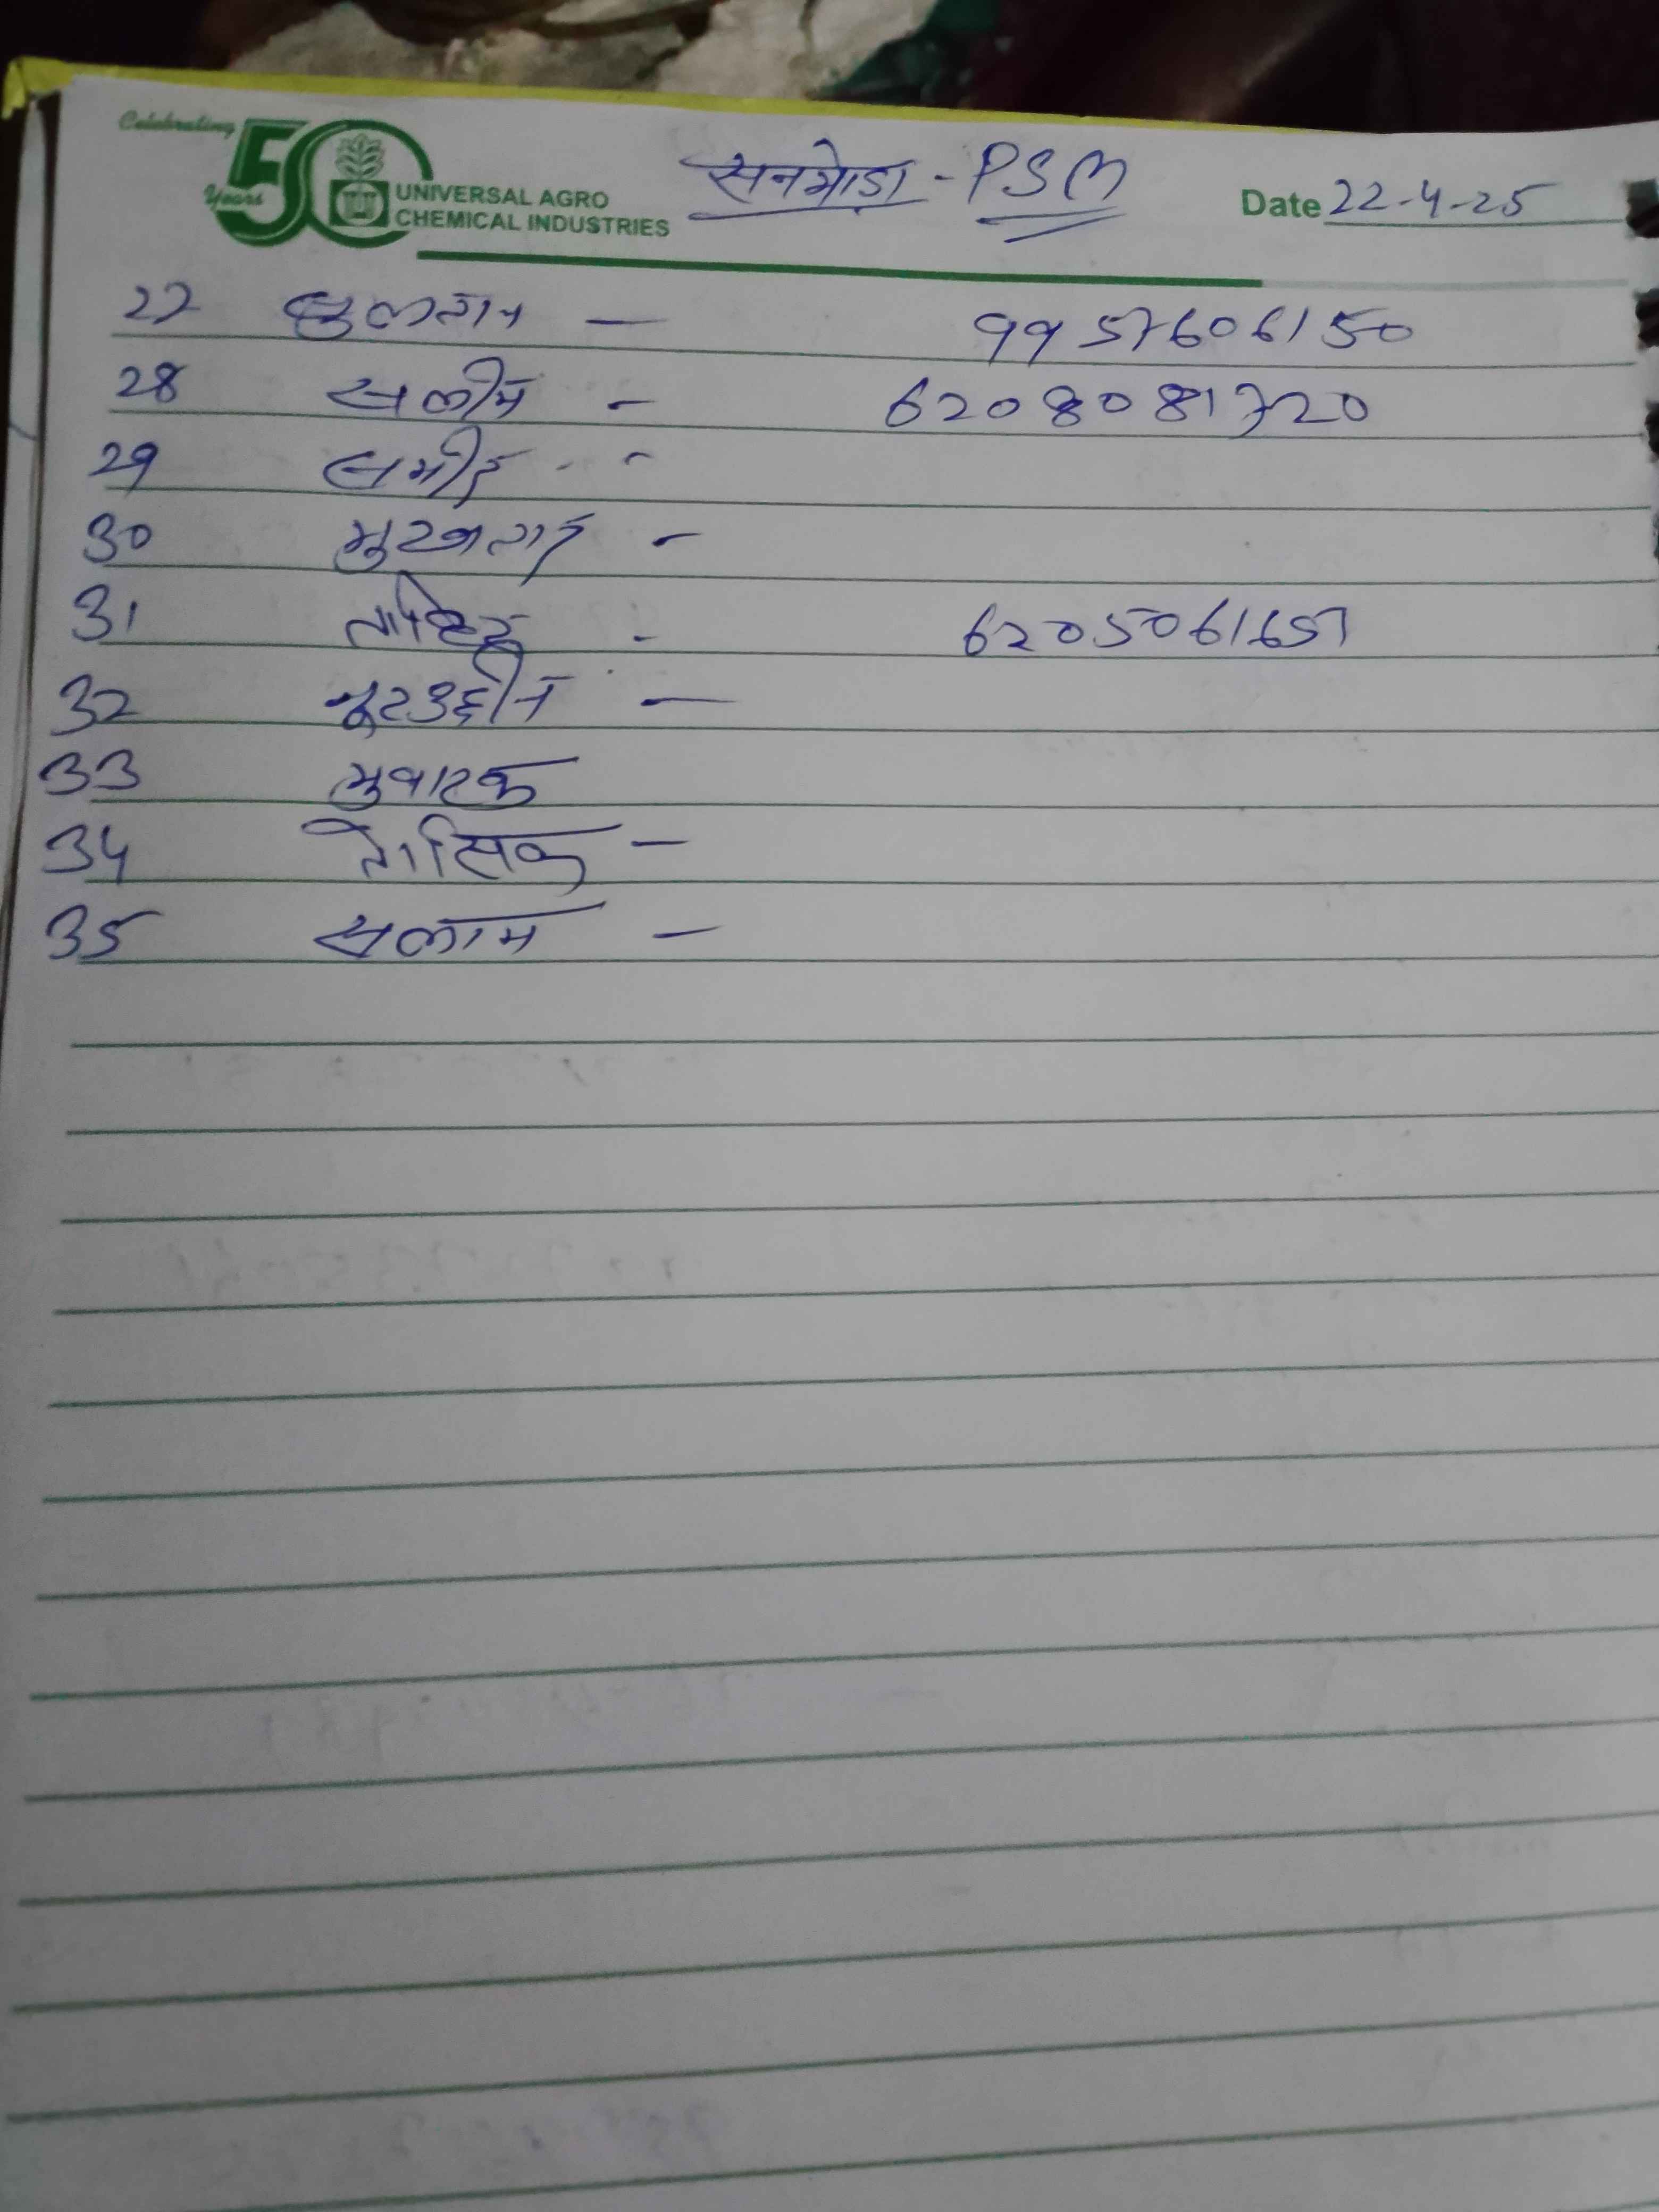 Celebrating
50 Years
UNIVERSAL AGRO
CHEMICAL INDUSTRIES
सनमोडा - PSM
Date 22-4-25
27 सुलतान - 9957606150
28 सलीम - 6208081720
29 समीर - -
30 मुखतार -
31 ताहिर - 6205061657
32 नूरउद्दीन -
33 मुवारक
34 तासिक -
35 सलाम -